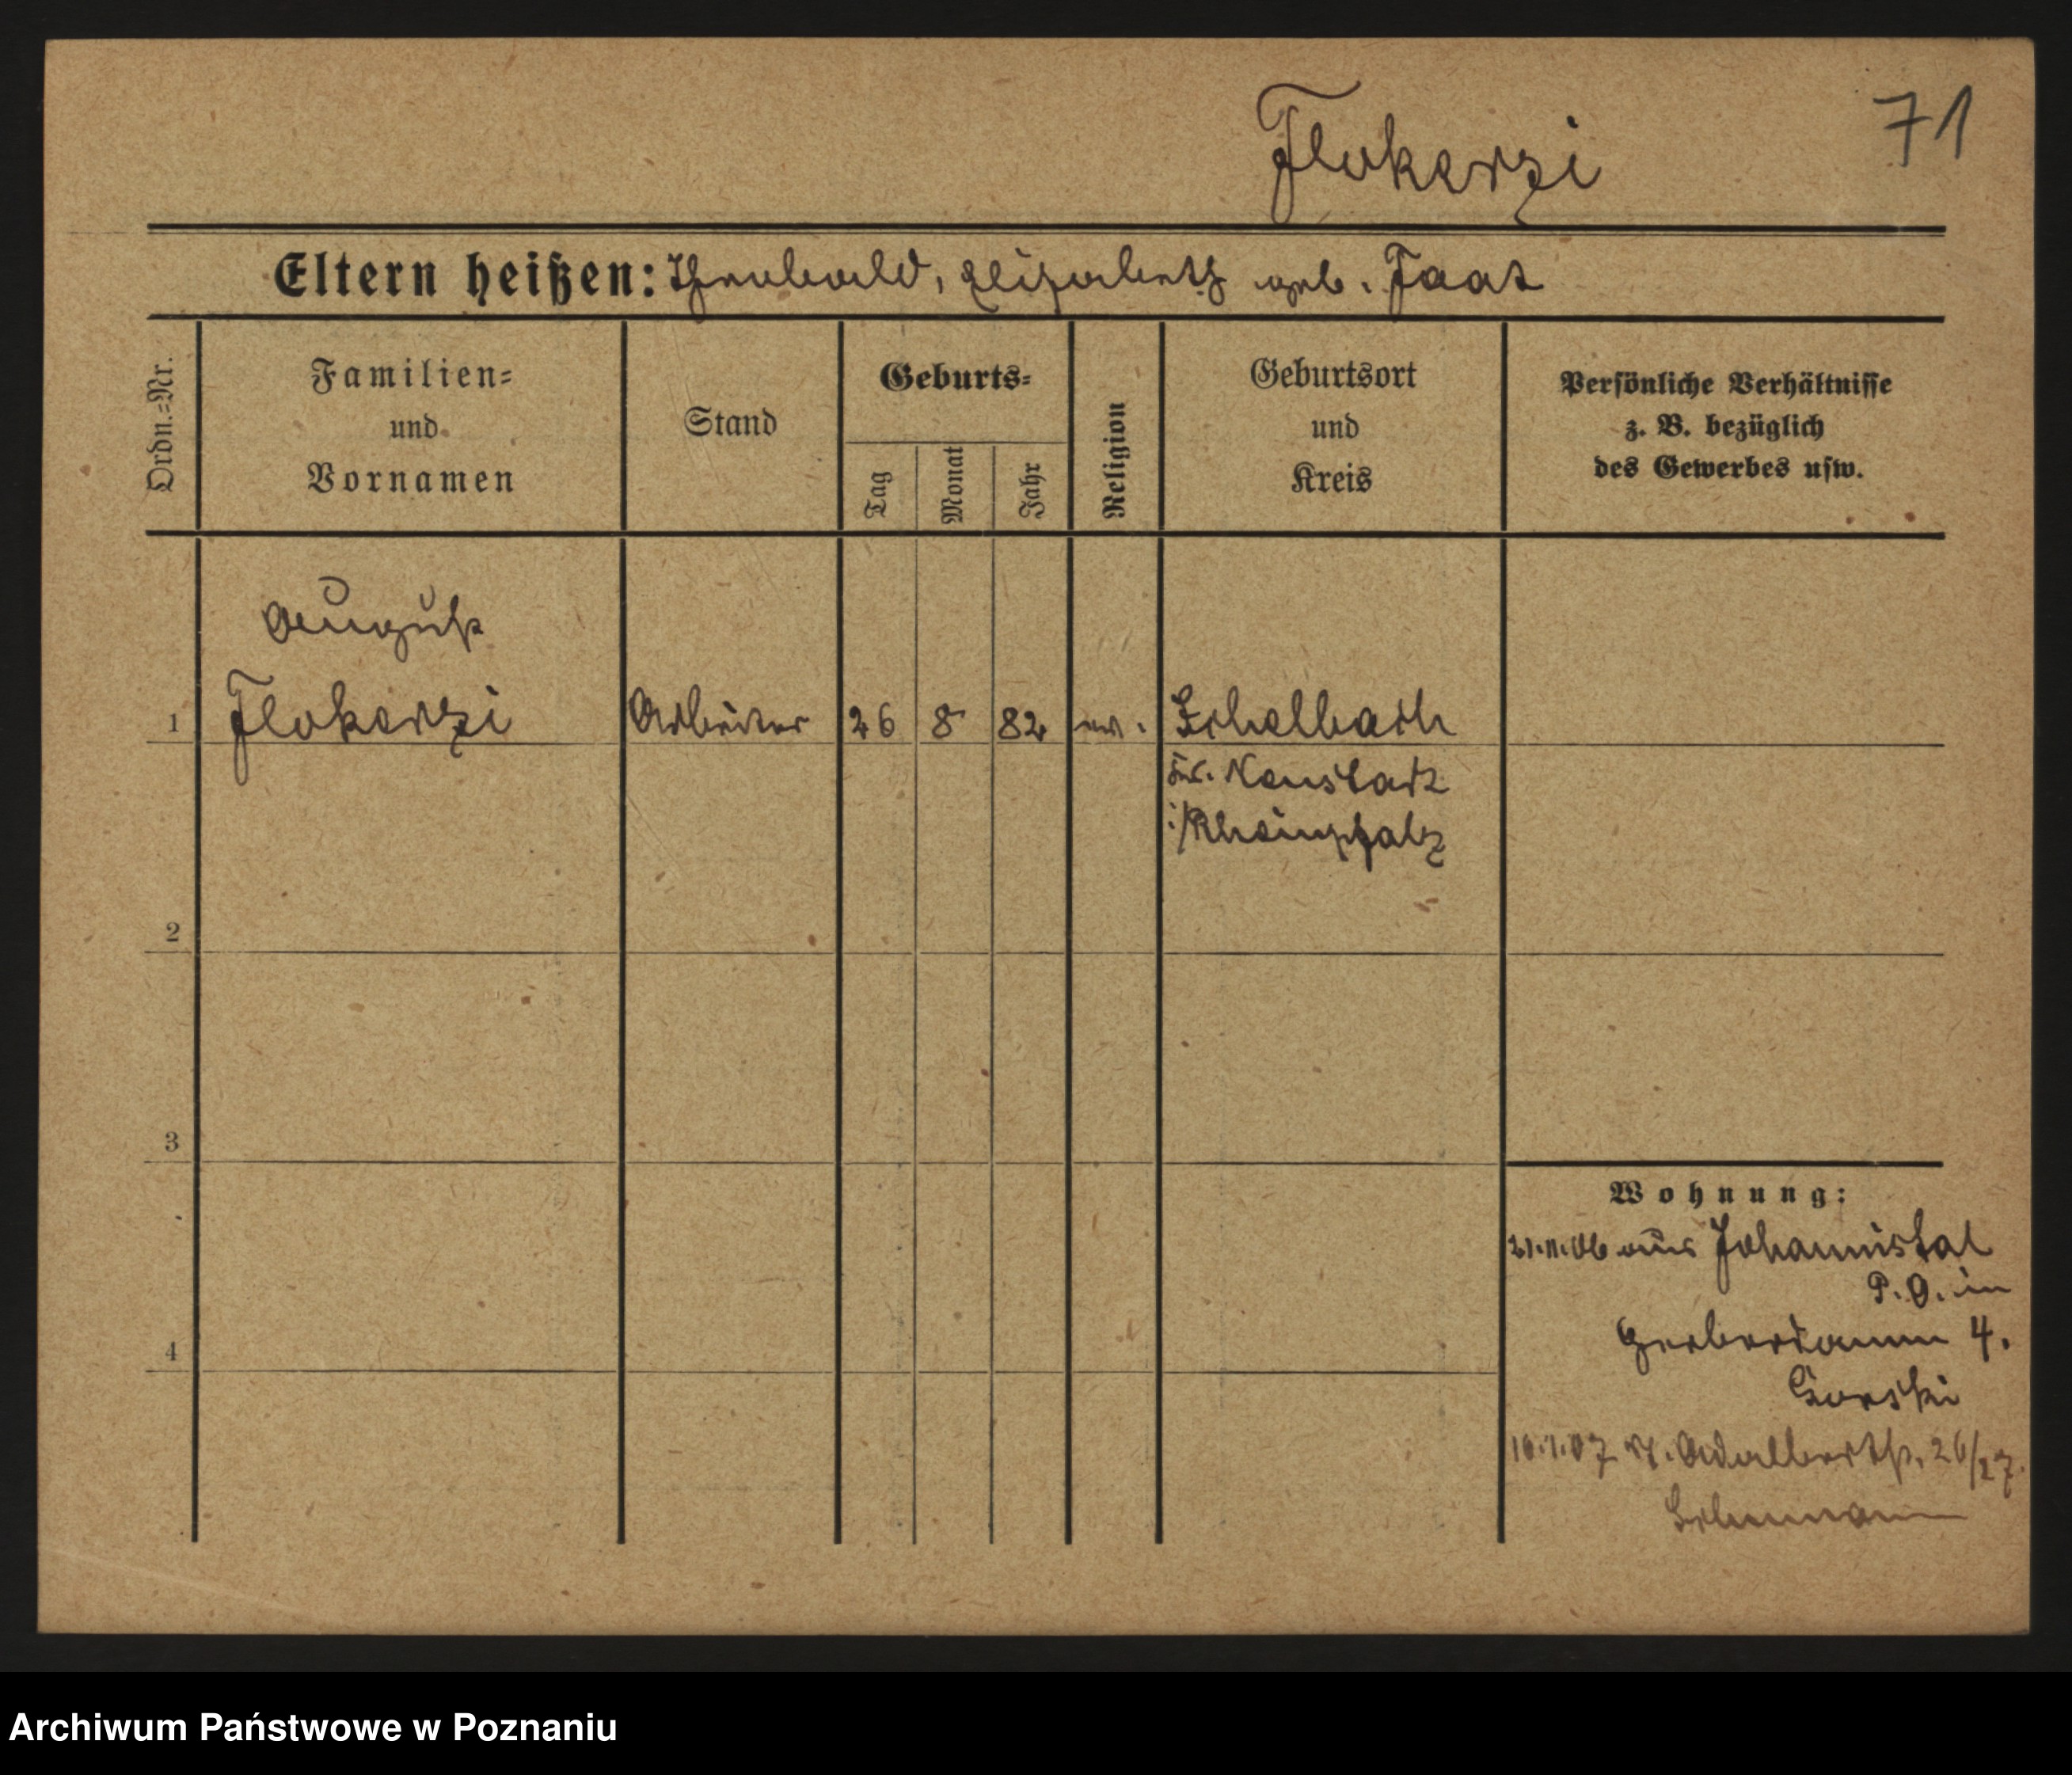 Flokerzi 71
Eltern heißen: Theobald, Elisabeth geb. Faat
Ordn.=Nr.
Familien=
und
Vornamen
Stand
Geburts=
Tag
Monat
Jahr
Religion
Geburtsort
und
Kreis
Persönliche Verhältnisse
z. B. bezüglich
des Gewerbes usw.
August
1 Flokerzi Arbeiter 26 8 82 ev. Echelbach
Kr. Neustadt
i/Rheinpfalz
2
3
4
Wohnung:
21.11.06 aus Johannistal
P. O. in
Gerberdamm 4.
Gorski
10.1.07 n. Adalbertst. 26/27.
Schumann
Archiwum Państwowe w Poznaniu